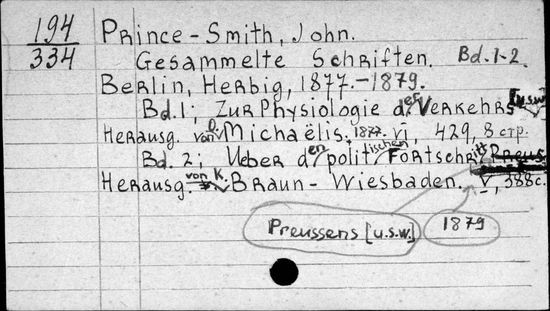 194
334
Prince-Smith, John.
Gesammelte Schriften. Bd.1-2.
Berlin, Herbig, 1877.-1879.
Bd.1; Zur Physiologie des Verkehrs [u.s.w.]
Herausg. von O. Michaëlis. 1877. VI, 429, 8 стр.
Bd. 2; Ueber den politischen Fortschritt
Herausg. von K. Braun-Wiesbaden. V, 388 с.
Preussens [u.s.w.] 1879